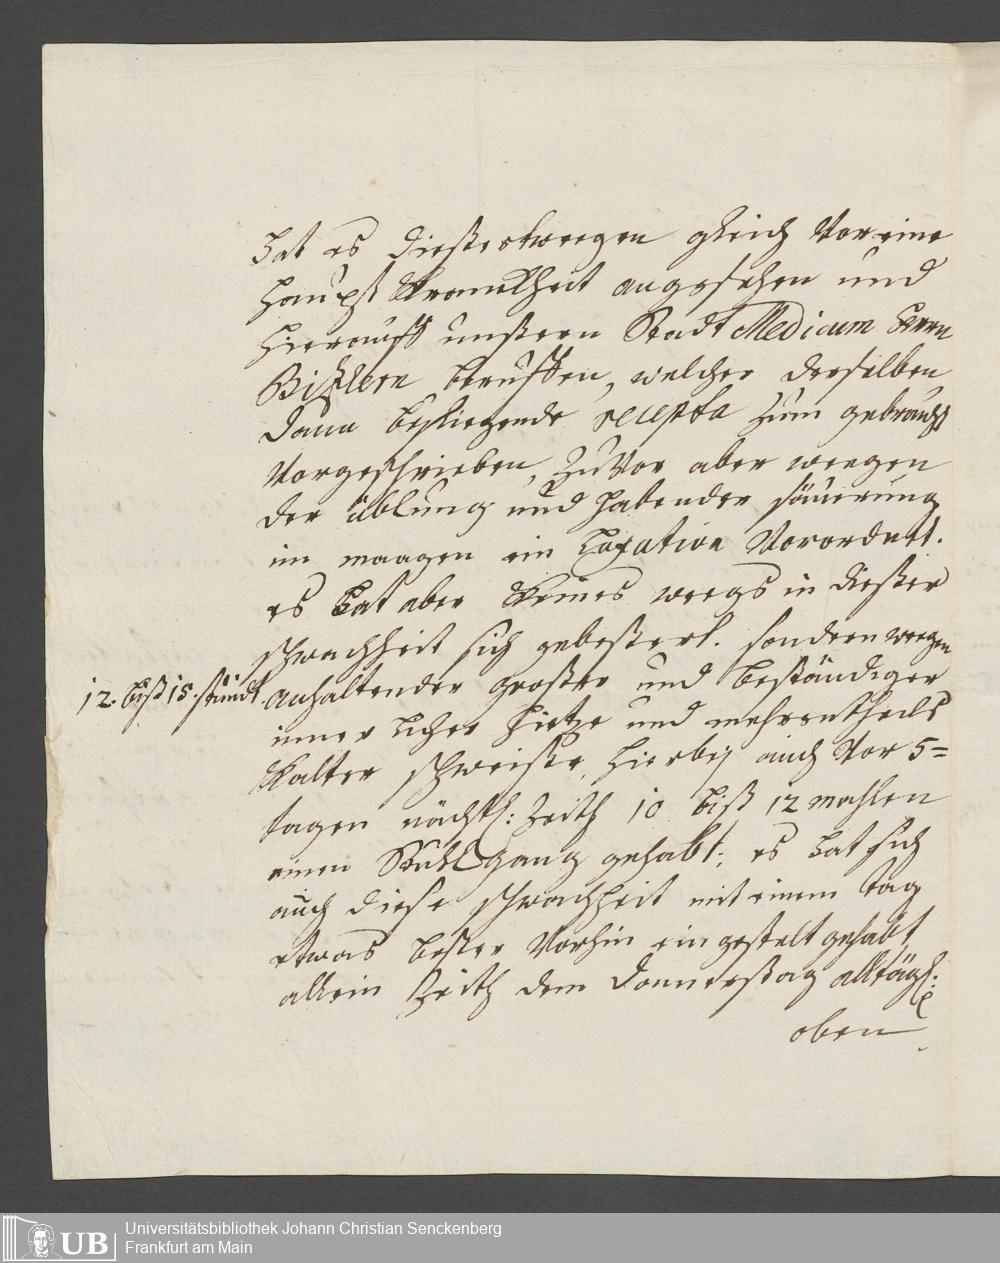 hat es dießerthwegen gleich Vor eine
haupt Kranckheit angesehen und
hierauff unßern Stadt Medicum herrn
Bißlern beruffen, welcher derselben
dann beyliegende recepta zum gebrauch
Vorgeschrieben, zuvor aber weegen
der üblung und habender säuerung
im maagen ein Laxativ Verordnet.
es hat aber Keines weegs in dießer
schwachheit sich gebeßert. sondern weegen
12. biß 15. stündt. anhaltender großer und beständiger
innerlicher hietze und mehrentheils
Kalter schweiße, hierbey auch Vor 5=
tagen nächtl: Zeith 10 biß 12 mahlen
einen Stuhlgang gehabt; es hat sich
auch diese schwachheit mit einem tag
etwas beßer Vorhin eingestelt gehabt
allein Zeith dem Donnerstag alltägl:
oben
UB Universitätsbibliothek Johann Christian Senckenberg
Frankfurt am Main